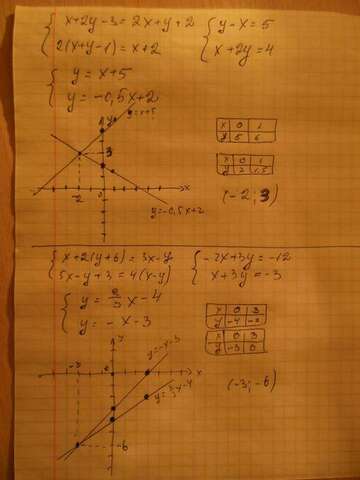 x+2y-3=2x+y+2
2(x+y-1)=x+2
y-x=5
x+2y=4
y=x+5
y=-0,5x+2
y=x+5
x 0 1
y 5 6
x 0 1
y 2 1,5
3
-2
0
x
y=-0,5x+2
(-2; 3)
x+2(y+6)=3x-y
5x-y+3=4(x-y)
-2x+3y=-12
x+3y=-3
y=2/3x-4
y=-x-3
x 0 3
y -4 -2
x 0 3
y -3 0
y
y=-x-3
-3
0
x
-6
(-3; -6)